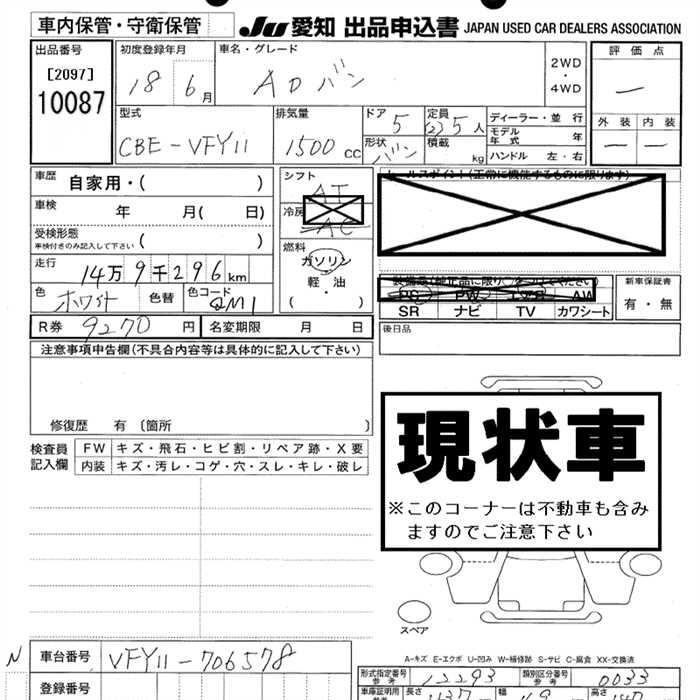 車内保管・守衛保管
JU 愛知 出品申込書 JAPAN USED CAR DEALERS ASSOCIATION
出品番号
[2097]
10087
初度登録年月
18 6月
車名・グレード
ADバン
2WD
・
4WD
評価点
ー
外装 内装
ー ー
型式
CBE-VFY11
排気量
1500cc
ドア
5
定員
(2)5人
形状
バン
積載
kg
ディーラー・並行
モデル年式 年
ハンドル 左・右
車歴
自家用・( )
車検
年 月( 日)
受検形態
車検付きのみ記入して下さい ( )
走行
14万9千296km
色
ホワイト
色替
色コード
QM1
R券 9270円
名変期限 月 日
シフト
AT
冷房
AC
燃料
ガソリン
・
軽油
( )
セールスポイント(正常に機能するものに限ります)
PS PW AW
SR ナビ TV カワシート
新車保証書
有・無
後日品
注意事項申告欄(不具合内容等は具体的に記入して下さい)
修復歴 有〔箇所 〕
検査員記入欄
FW キズ・飛石・ヒビ割・リペア跡・X要
内装 キズ・汚レ・コゲ・穴・スレ・キレ・破レ
現状車
※このコーナーは不動車も含み
ますのでご注意下さい
スペア
A-キズ E-エクボ U-凹み W-補修跡 S-サビ C-腐食 XX-交換済
N
車台番号
VFY11-706578
登録番号
形式指定番号 参考
12293
類別区分番号 参考
0033
車庫証明用 参考
長さ
437
幅
高さ